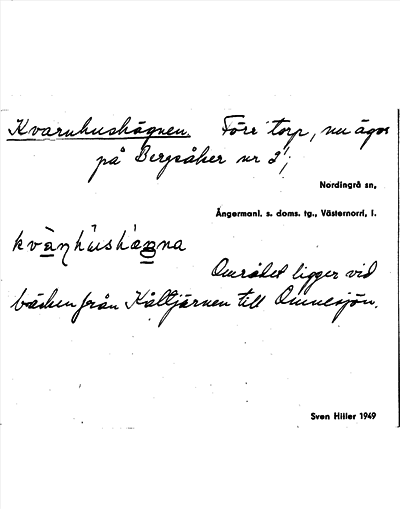 Kvarnhushägnen. Förr torp, nu ägor
på Bergsåker nr 2;
Nordingrå sn,
Ångermanl. s. doms. tg., Västernorrl. l.
Området ligger vid
bäcken från Kåltjärnen till Omnesjön.
Sven Hiller 1949